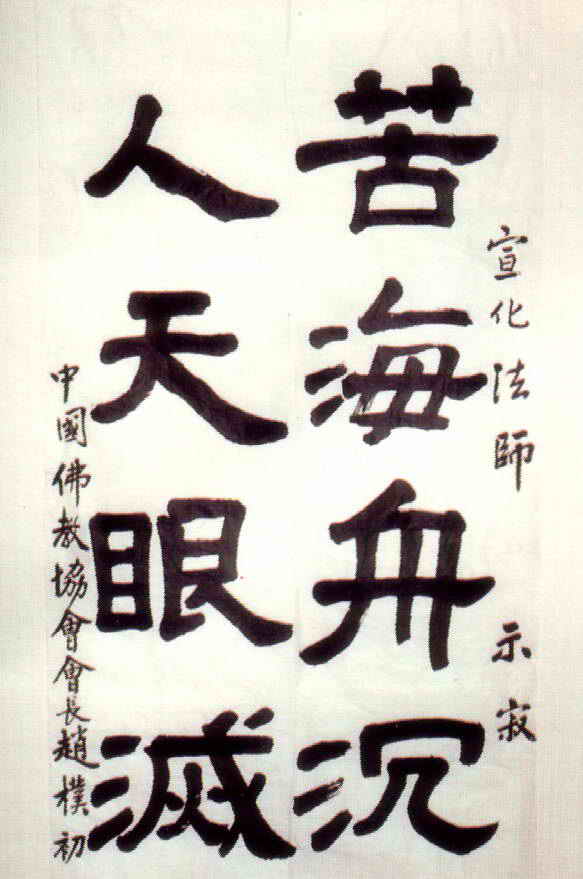 宣化法師 示寂
苦海舟沉
人天眼滅
中國佛教協會會長趙樸初